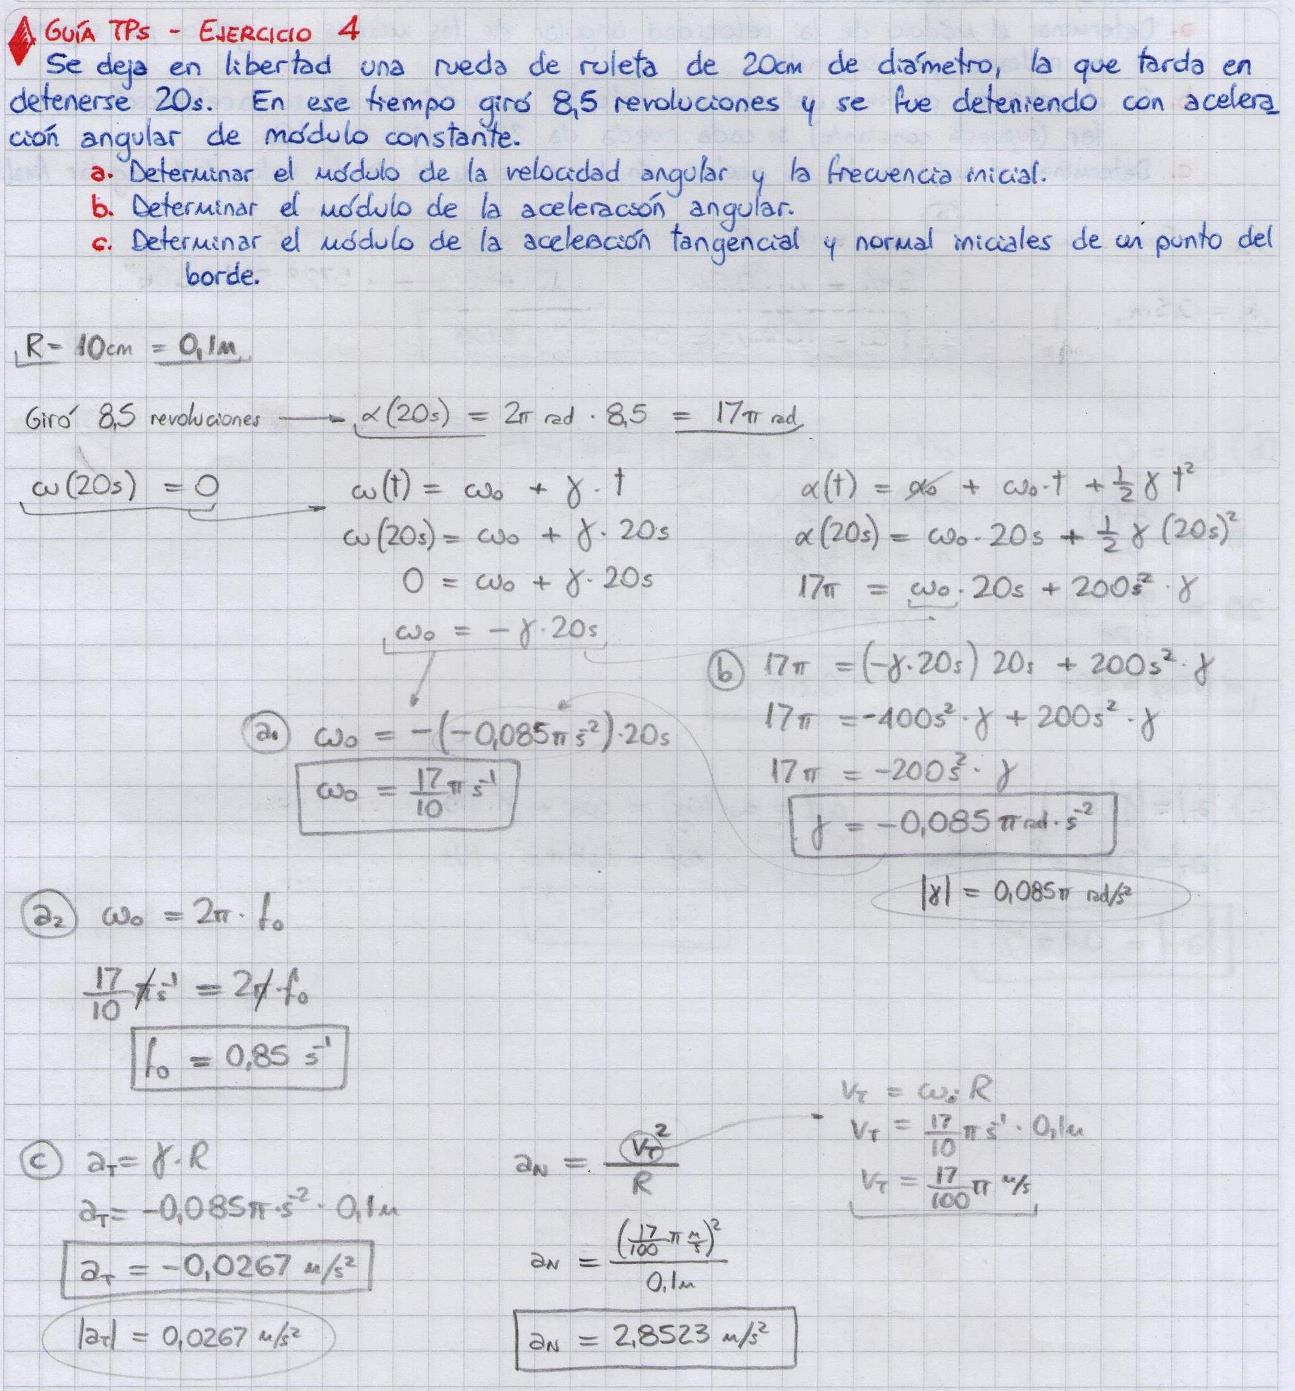 GUÍA TPs - EJERCICIO 4
Se deja en libertad una rueda de ruleta de 20cm de diámetro, la que tarda en
detenerse 20s. En ese tiempo giró 8,5 revoluciones y se fue deteniendo con acelera
ción angular de módulo constante.
a. Determinar el módulo de la velocidad angular y la frecuencia inicial.
b. Determinar el módulo de la aceleracsón angular.
c. Determinar el módulo de la aceleración tangencial y normal iniciales de un punto del
borde.
R = 10cm = 0,1m
Giró 8,5 revoluciones → α(20s) = 2π rad · 8,5 = 17π rad
ω(20s) = 0
ω(t) = ω₀ + γ · t
ω(20s) = ω₀ + γ · 20s
0 = ω₀ + γ · 20s
ω₀ = -γ · 20s
α(t) = α₀ + ω₀·t + 1/2 γ t²
α(20s) = ω₀ · 20s + 1/2 γ (20s)²
17π = ω₀ · 20s + 200s² · γ
b 17π = (-γ·20s) 20s + 200s² · γ
17π = -400s² · γ + 200s² · γ
17π = -200s² · γ
γ = -0,085π rad · s⁻²
|γ| = 0,085π rad/s²
a₁ ω₀ = -(-0,085π s⁻²)·20s
ω₀ = 17/10 π s⁻¹
a₂ ω₀ = 2π · f₀
17/10 π s⁻¹ = 2π · f₀
f₀ = 0,85 s⁻¹
c a_T = γ · R
a_T = -0,085π · s⁻² · 0,1m
a_T = -0,0267 m/s²
|a_T| = 0,0267 m/s²
a_N = V_T² / R
a_N = (17/100 π m/s)² / 0,1m
a_N = 2,8523 m/s²
V_T = ω₀ · R
V_T = 17/10 π s⁻¹ · 0,1m
V_T = 17/100 π m/s